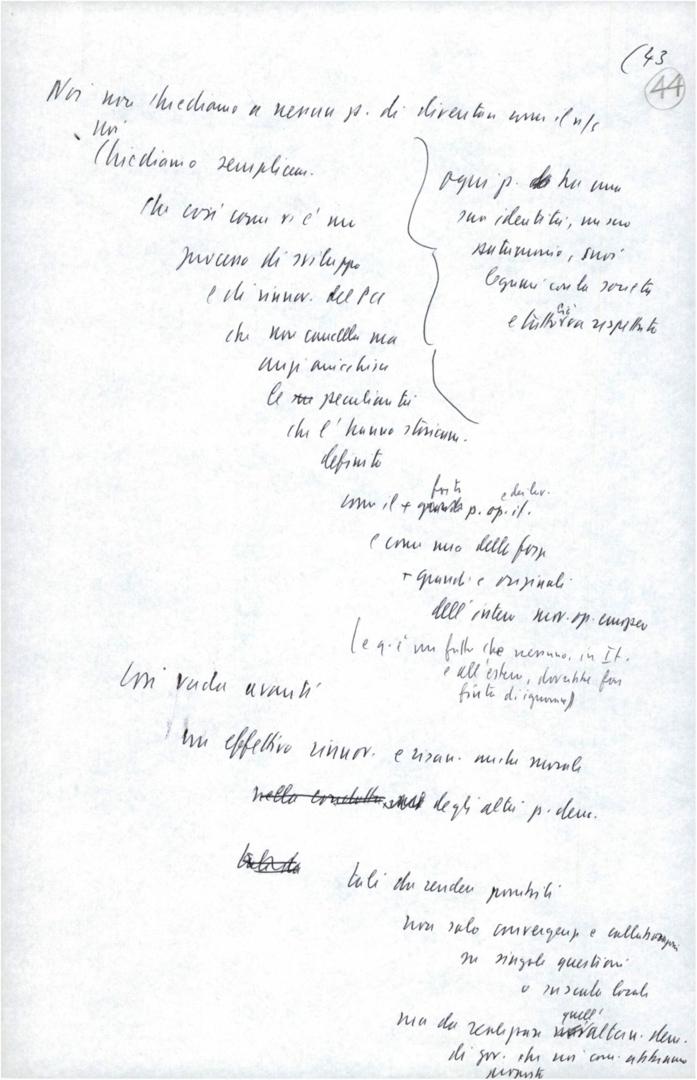 (43
44
Noi non chiediamo a nessun p. di diventare come il n/s
noi
Chiediamo semplicem.
che così come vi è un
processo di sviluppo
e di rinnov. del PCI
che non cancella ma
anzi arricchisce
le peculiarità
che l'hanno storicam.
definito
come il + forte p. op. it.
e come una delle forze
+ grandi e originali
dell'intero mov. op. europeo
(e q. è un fatto che nessuno, in It.
e all'estero, dovrebbe far
finta di ignorare)
ogni p. ha una
sua identità, un suo
patrimonio, suoi
legami con la società
e tutto ciò va rispettato
Così vada avanti
un effettivo rinnov. e risan. anche morale
nella condotta degli altri p. dem.
tali da
tali da rendere possibili
non solo convergenze e collaborazioni
su singole questioni
o su scala locale
ma da realizzare quell' altern. dem.
di gov. che noi com. abbiamo
proposto